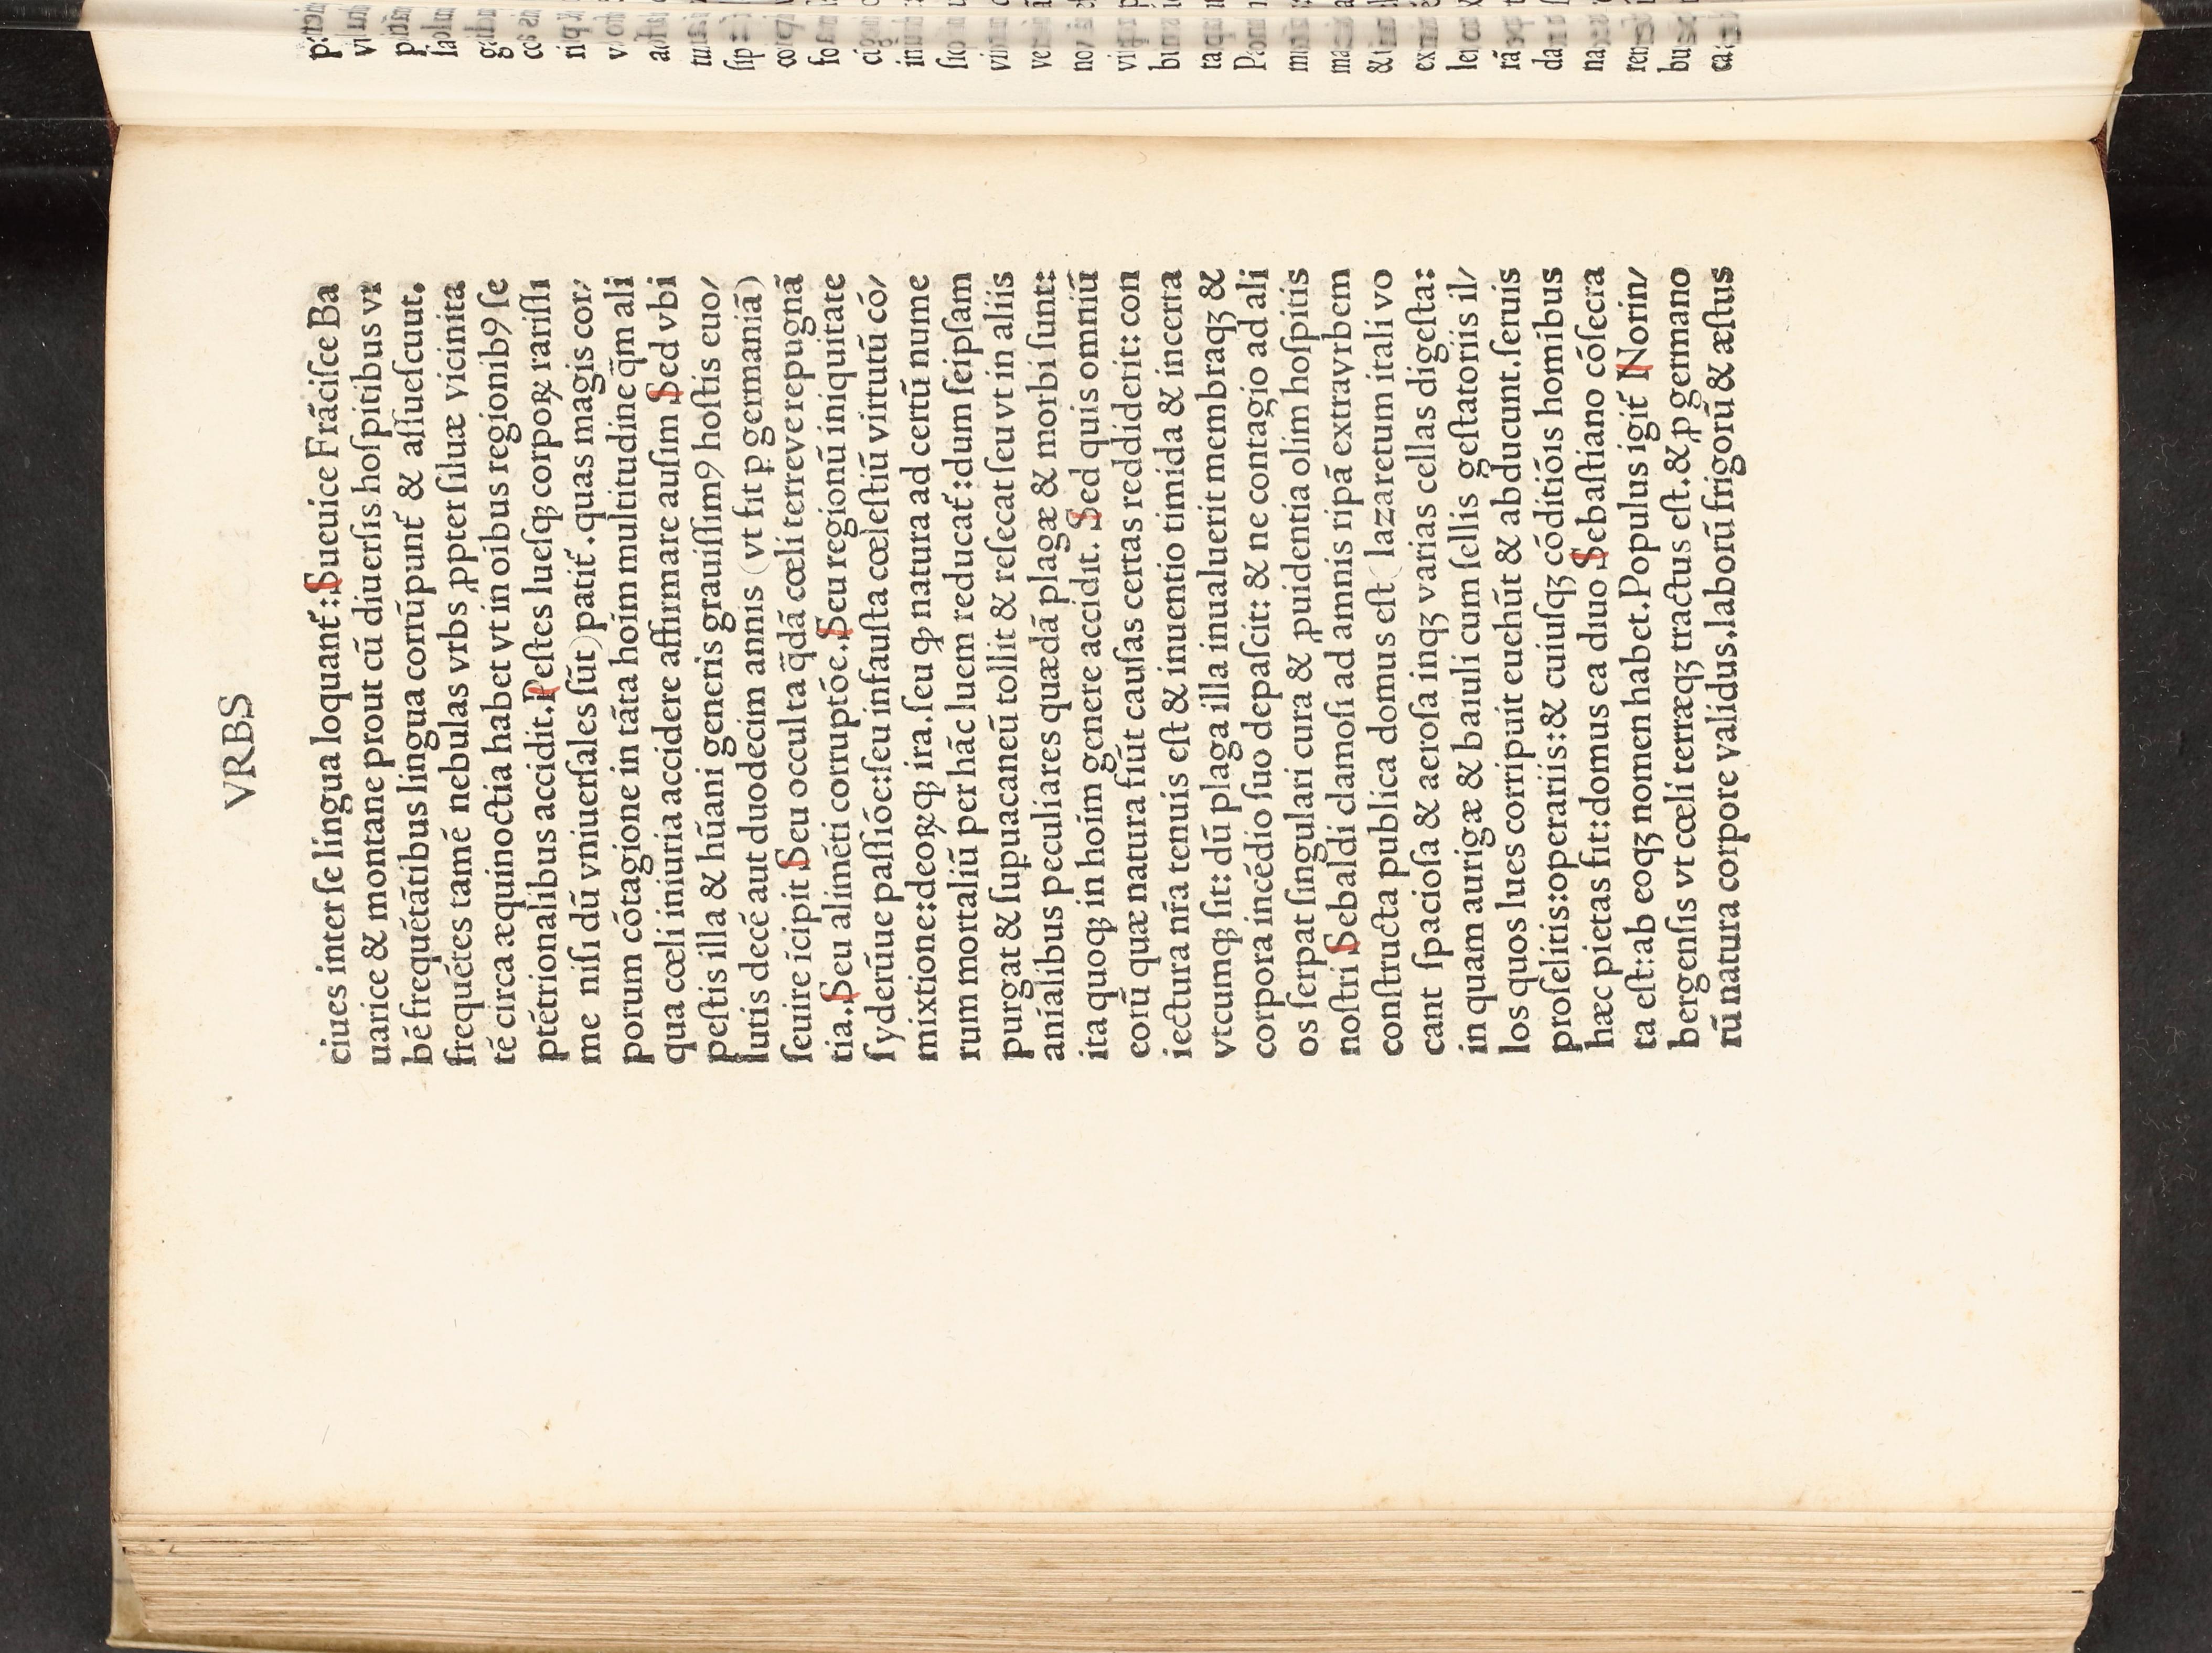 VRBS
ciues inter ſe lingua loquant᷑: Sueuice Frāciſce Ba
uarice & montane prout cū diuerſis hoſpitibus vr
bē frequētātibus lingua corrūpunt᷑ & aſſueſcuut.
frequētes tamē nebulas vrbs ꝓpter ſiluæ vicinita
tē circa æquinoctia habet vt in oibus regionibꝰ ſe
ptētrionalibus accidit. Peſtes lueſqꝫ corpoꝝ rariſſi
me niſi dū vniuerſales ſūt) patit᷑. quas magis cor⸗
porum cōtagione in tāta hoīm multitudine q̄m ali
qua cœli iniuria accidere affirmare auſim Sed vbi
peſtis illa & hūani generis grauiſſimꝰ hoſtis euo/
lutis decē aut duodecim annis (vt fit ꝑ germaniā)
ſeuire īcipit Seu occulta q̄dā cœli terreve repugnā
tia. Seu alimēti corruptōe. Seu regionū iniquitate
ſyderūue paſſiōe: ſeu infauſta cœleſtiū virtutū cō/
mixtione: deoꝝqꝫ ira. ſeu ꝙ natura ad certū nume
rum mortaliū per hāc luem reducat᷑: dum ſeipſam
purgat & ſupuacaneū tollit & reſecat ſeu vt in aliis
anīalibus peculiares quædā plagæ & morbi ſunt:
ita quoqꝫ in hoīm genere accidit. Sed quis omniū
eorū quæ natura fiūt cauſas certas reddiderit: con
iectura nr̄a tenuis eſt & inuentio timida & incerta
vtcumqꝫ ſit: dū plaga illa inualuerit membraqꝫ &
corpora incēdio ſuo depaſcit: & ne contagio ad ali
os ſerpat ſingulari cura & ꝓuidentia olim hoſpitis
noſtri Sebaldi clamoſi ad amnis ripā extra vrbem
conſtructa publica domus eſt (lazaretum itali vo
cant ſpacioſa & aeroſa inqꝫ varias cellas digeſta:
in quam aurigæ & baiuli cum ſellis geſtatoriis il/
los quos lues corripuit euehūt & abducunt. ſeruis
proſelitis: operariis: & cuiuſqꝫ cōditiōis homibus
hæc pietas fit: domus ea diuo Sebaſtiano cōſecra
ta eſt: ab eoqꝫ nomen habet. Populus igit᷑ Norin/
bergenſis vt cœli terræqꝫ tractus eſt. & ꝓ germano
rū natura corpore validus. laborū frigorū & æſtus